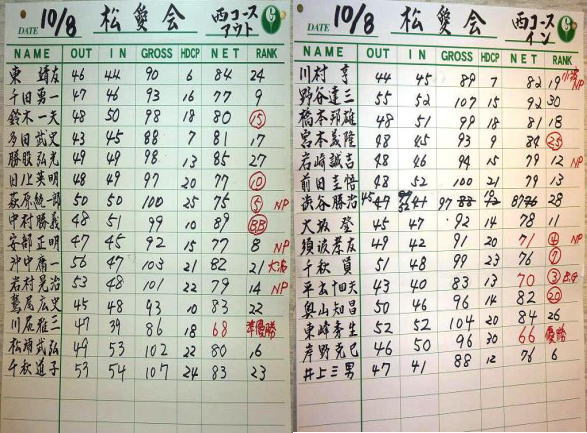 DATE 10/8 松愛会 西コース アウト G
NAME OUT IN GROSS HDCP NET RANK
東 靖友 46 44 90 6 84 24
千田勇一 47 46 93 16 77 9
鈴木一夫 48 50 98 18 80 15
多田武史 43 45 88 7 81 17
勝股弘光 49 49 98 13 85 27
田辻英明 48 49 97 20 77 10
萩原統一郎 50 50 100 25 75 5 NP
中村勝義 48 51 99 10 89 BB
安部正明 47 45 92 15 77 8 NP
沖中庸一 56 47 103 21 82 21
岩村晃治 53 48 101 22 79 14 NP
鷲尾広史 45 48 93 10 83 22
川原雅二 47 39 86 18 68 準優勝
松浦武弘 49 53 102 22 80 16
千秋道子 53 54 107 24 83 23
DATE 10/8 松愛会 西コース イン G
NAME OUT IN GROSS HDCP NET RANK
川村 亨 44 45 89 7 82 19 NP
野谷達三 55 52 107 15 92 30
橋本邦雄 48 51 99 18 81 18
宮本義隆 48 45 93 9 84 25
岩崎誠吉 48 46 94 15 79 12 NP
前田圭悟 48 52 100 21 79 13
渋谷勝治 45 52 97 10 87 28
大坂 登 45 47 92 14 78 11
須波孝友 49 42 91 20 71 4 NP
千秋 賀 51 48 99 23 76 7
平古十四夫 43 40 83 13 70 3
奥山知昌 50 46 96 14 82 20
東峰孝生 52 52 104 20 84 26
岸野克巳 46 50 96 30 66 優勝
井上三男 47 41 88 12 76 6